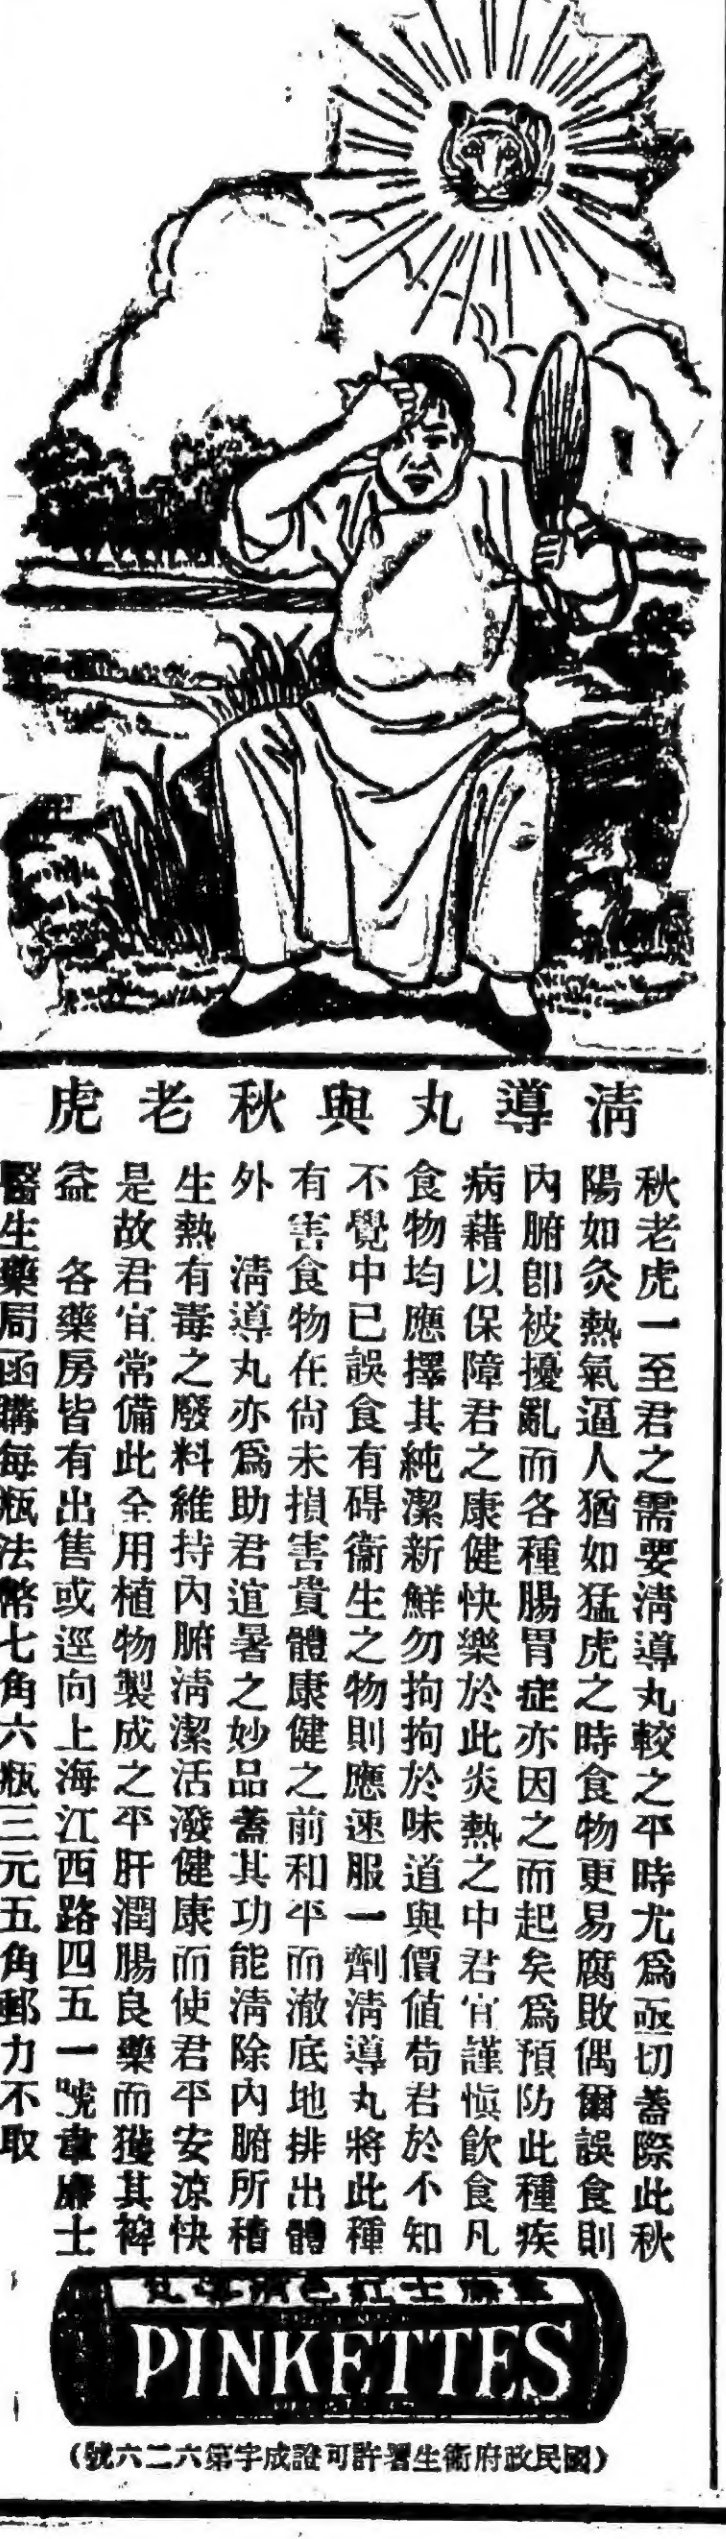 清導丸與秋老虎
秋老虎一至君之需要清導丸較之平時尤爲亟切蓋際此秋
陽如灸熱氣逼人猶如猛虎之時食物更易腐敗偶爾誤食則
內腑卽被擾亂而各種腸胃症亦因之而起矣爲預防此種疾
病藉以保障君之康健快樂於此炎熱之中君宜謹愼飲食凡
食物均應擇其純潔新鮮勿拘拘於味道與價値苟君於不知
不覺中已誤食有碍衞生之物則應速服一劑清導丸將此種
有害食物在尙未損害貴體康健之前和平而澈底地排出體
外　清導丸亦爲助君逭暑之妙品蓋其功能清除內腑所積
生熱有毒之廢料維持內腑清潔活潑健康而使君平安涼快
是故君宜常備此全用植物製成之平肝潤腸良藥而獲其裨
益　各藥房皆有出售或逕向上海江西路四五一號韋廉士
醫生藥局函購每瓶法幣七角六瓶三元五角郵力不取
韋廉士紅色清導丸
PINKETTES
(國民政府衞生署許可證成字第六二六號)